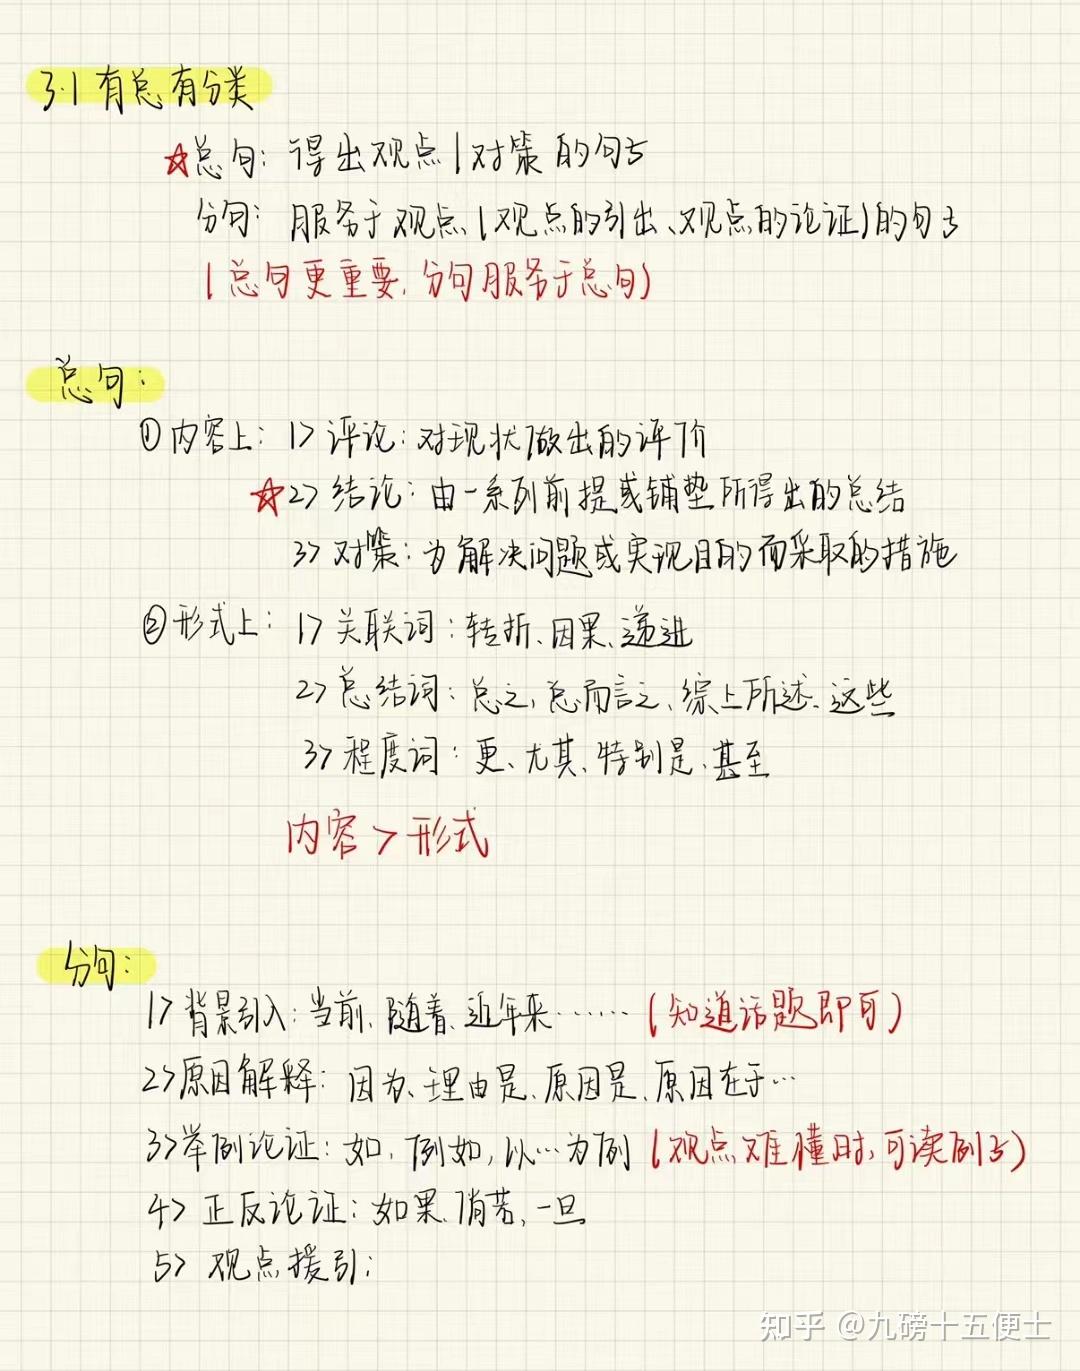 3.1 有总有分类
☆总句：得出观点/对策的句子
分句：服务于观点(观点的引出、观点的论证)的句子
(总句更重要，分句服务于总句)
总句：
①内容上：1> 评论：对现状做出的评价
☆2> 结论：由一系列前提或铺垫所得出的总结
3> 对策：为解决问题或实现目的而采取的措施
②形式上：1> 关联词：转折、因果、递进
2> 总结词：总之，总而言之、综上所述、这些
3> 程度词：更、尤其、特别是、甚至
内容 > 形式
分句：
1> 背景引入：当前、随着、近年来……（知道话题即可）
2>原因解释：因为、理由是、原因是、原因在于…
3>举例论证：如，例如，以…为例（观点难懂时，可读例子）
4> 正反论证：如果、倘若、一旦
5> 观点援引；
知乎 @九磅十五便士